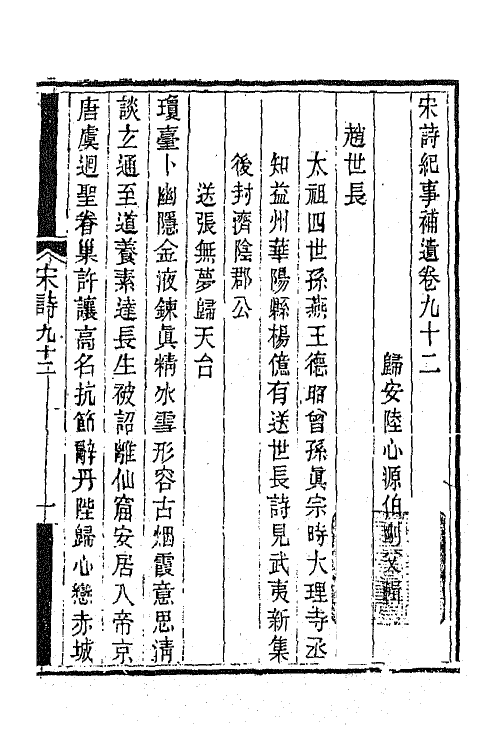 宋詩紀事補遺卷九十二
歸安陸心源伯剛父輯
趙世長
太祖四世孫燕王德昭曾孫眞宗時大理寺丞
知益州華陽縣楊億有送世長詩見武夷新集
後封濟陰郡公
送張無夢歸天台
瓊臺卜幽隱金液鍊眞精冰雪形容古烟霞意思淸
談玄通至道養素達長生被詔離仙窟安居入帝京
唐虞迴聖眷巢許讓高名抗節辭丹陛歸心戀赤城
宋詩九十二
一